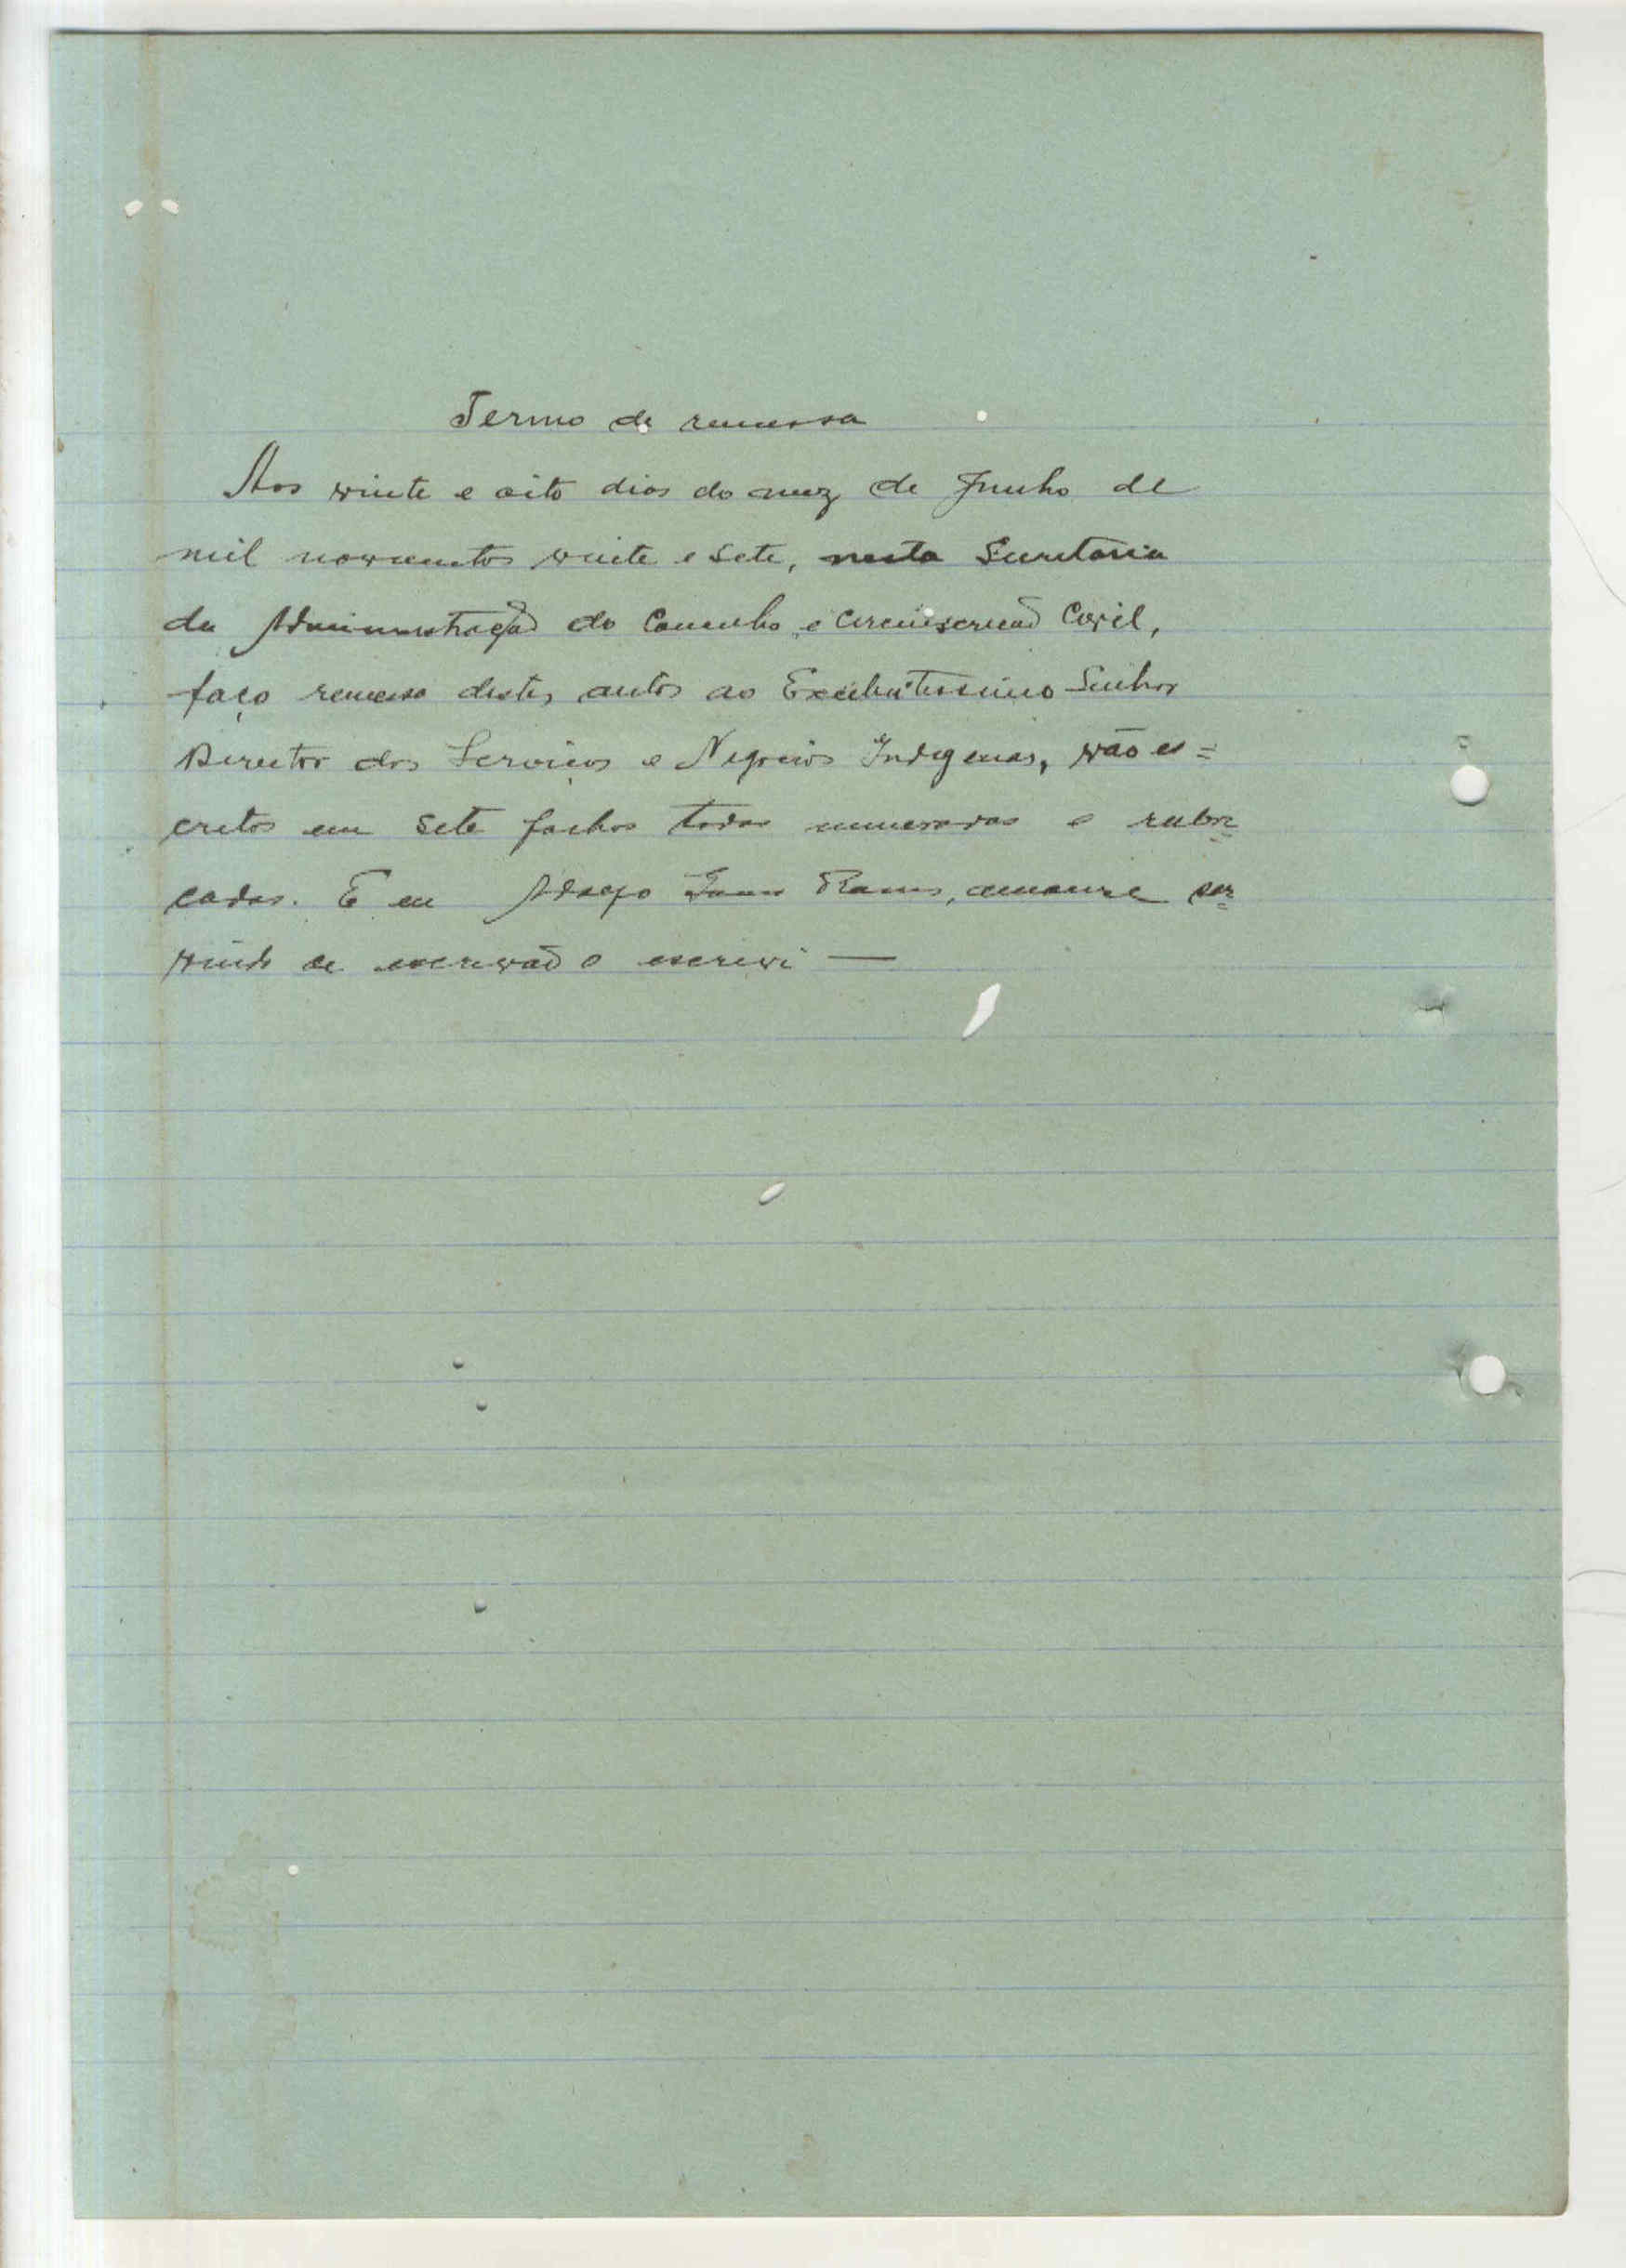 Termo de remessa
Aos vinte e oito dias do mez de Junho de
mil novecentos vinte e sete, nesta Secretaria
da Administração do Concelho e Circunscrição Civil,
faço remessa destes autos ao Excelentissimo Senhor
Director dos Serviços e Negocios Indigenas, vão es=
critos em sete folhas todas numeradas e rubri
cadas. E eu Ramos, amanuense ser
vindo de escrivão o escrevi —